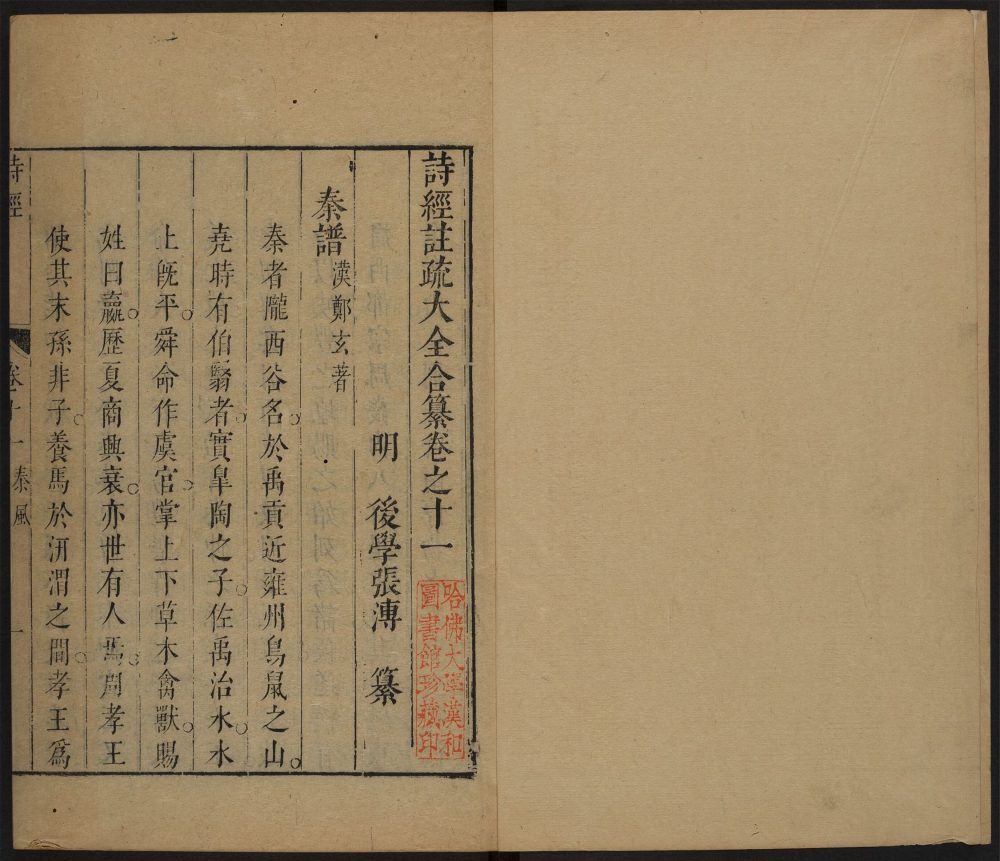 詩經註疏大全合纂卷之十一
明 後學張溥 纂
秦譜 漢鄭玄著
秦者隴西谷名○於禹貢近雍州鳥鼠之山○
堯時有伯翳者○實臯陶之子○佐禹治水○水
土既平○舜命作虞官○掌上下草木禽獸○賜
姓曰嬴○歷夏商興衰○亦世有人焉○周孝王
使其末孫非子○養馬於汧渭之間○孝王爲
詩經 卷十一 秦風 一
哈佛大學漢和
圖書館珍藏印